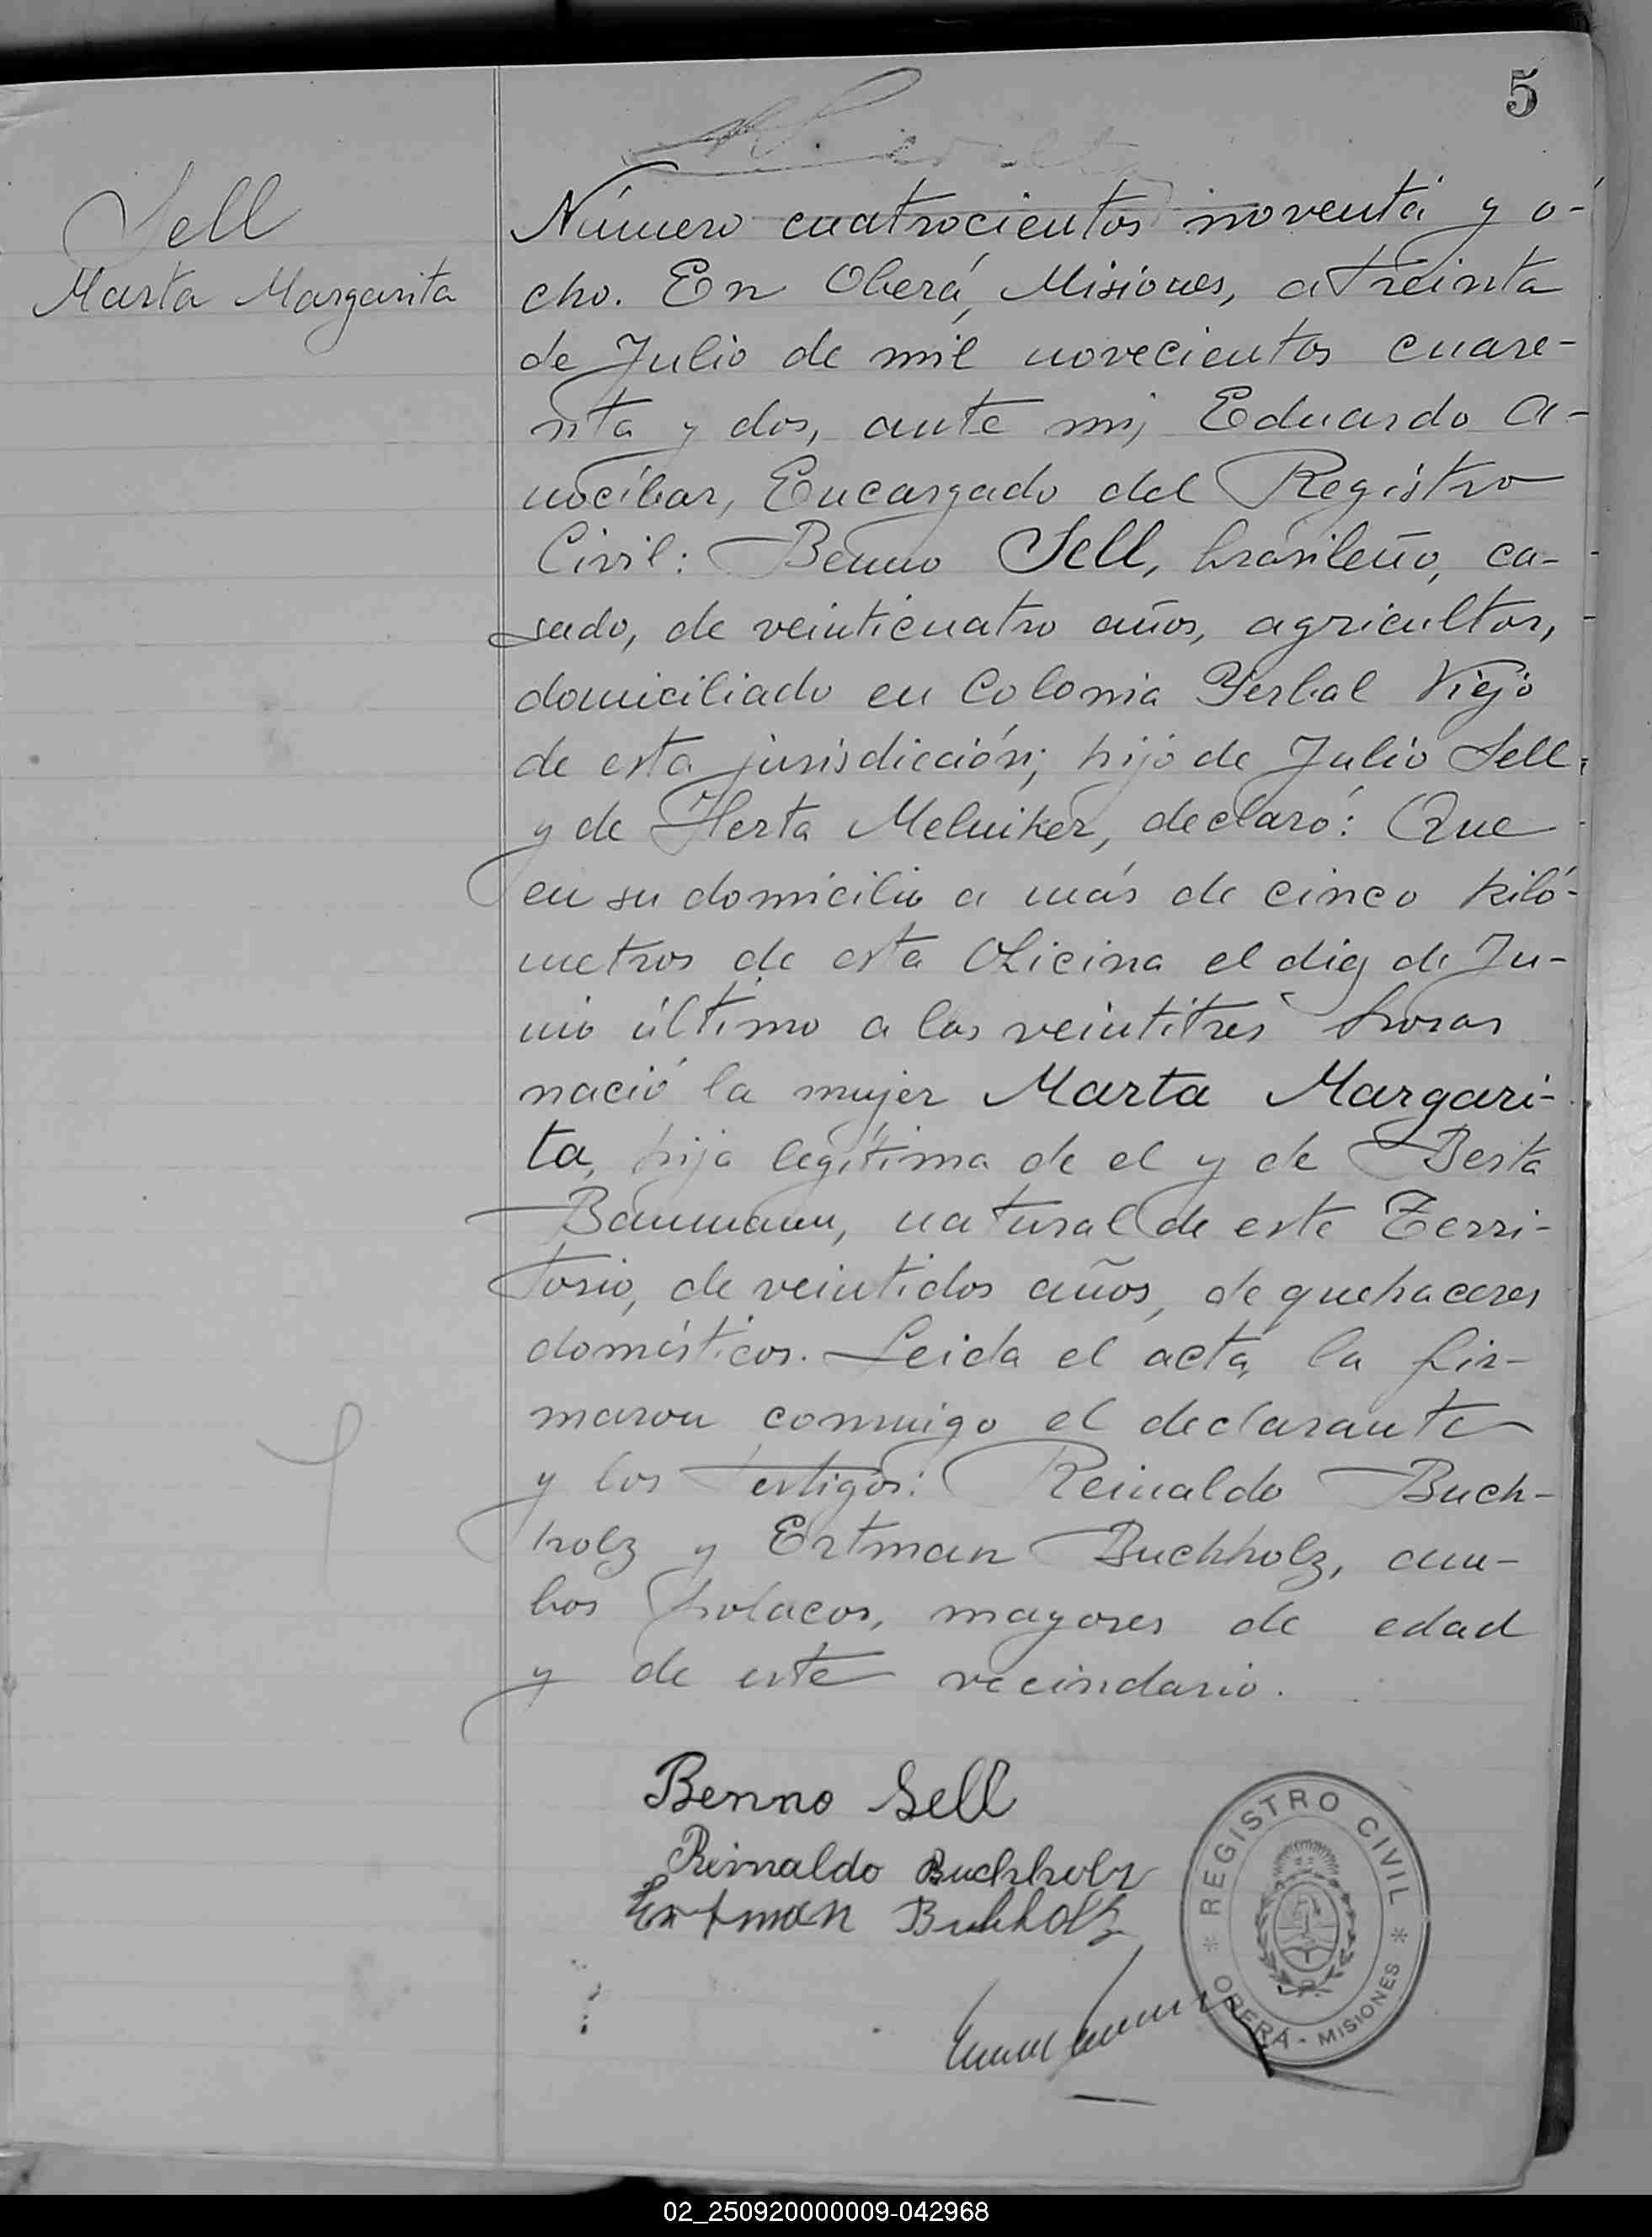 5
Sell
Marta Margarita
Número cuatrocientos noventa y o-
cho. En Oberá, Misiones, a treinta
de Julio de mil novecientos cuare-
nta y dos, ante mi, Eduardo A-
nocíbar, Encargado del Registro
Civil: Benno Sell, brasileño, ca-
sado, de veinticuatro años, agricultor,
domiciliado en Colonia Yerbal Viejo
de esta jurisdicción; hijo de Julio Sell
y de Herta Melniker, declaró: Que
en su domicilio a más de cinco kiló-
metros de esta Oficina el diez de Ju-
nio último a las veintitres horas
nació la mujer Marta Margari-
ta, hija legítima de el y de Berta
Baumann, natural de este Terri-
torio, de veintidos años, de quehaceres
domésticos. Leida el acta, la fir-
maron conmigo el declarante
y los testigos: Reinaldo Buch-
holz y Ertman Buchholz, am-
bos polacos, mayores de edad
y de este vecindario.
Benno Sell
Reinaldo Buchholz
Ertman Buhholz
REGISTRO CIVIL
OBERÁ - MISIONES
02_250920000009-042968